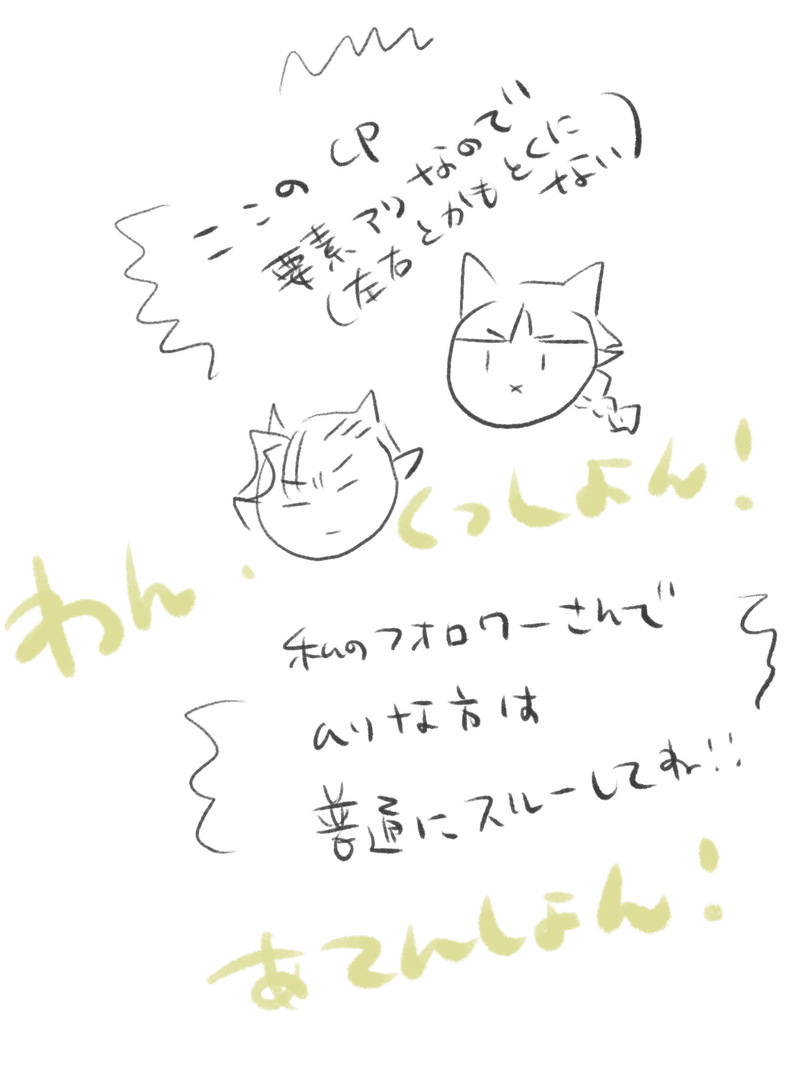 ここの CP
要素アリ なので
(左右とかもとくにない)
わん・くっしょん!
私のフォロワーさんで
ムリな方は
普通にスルーしてね!!
あてんしょん!